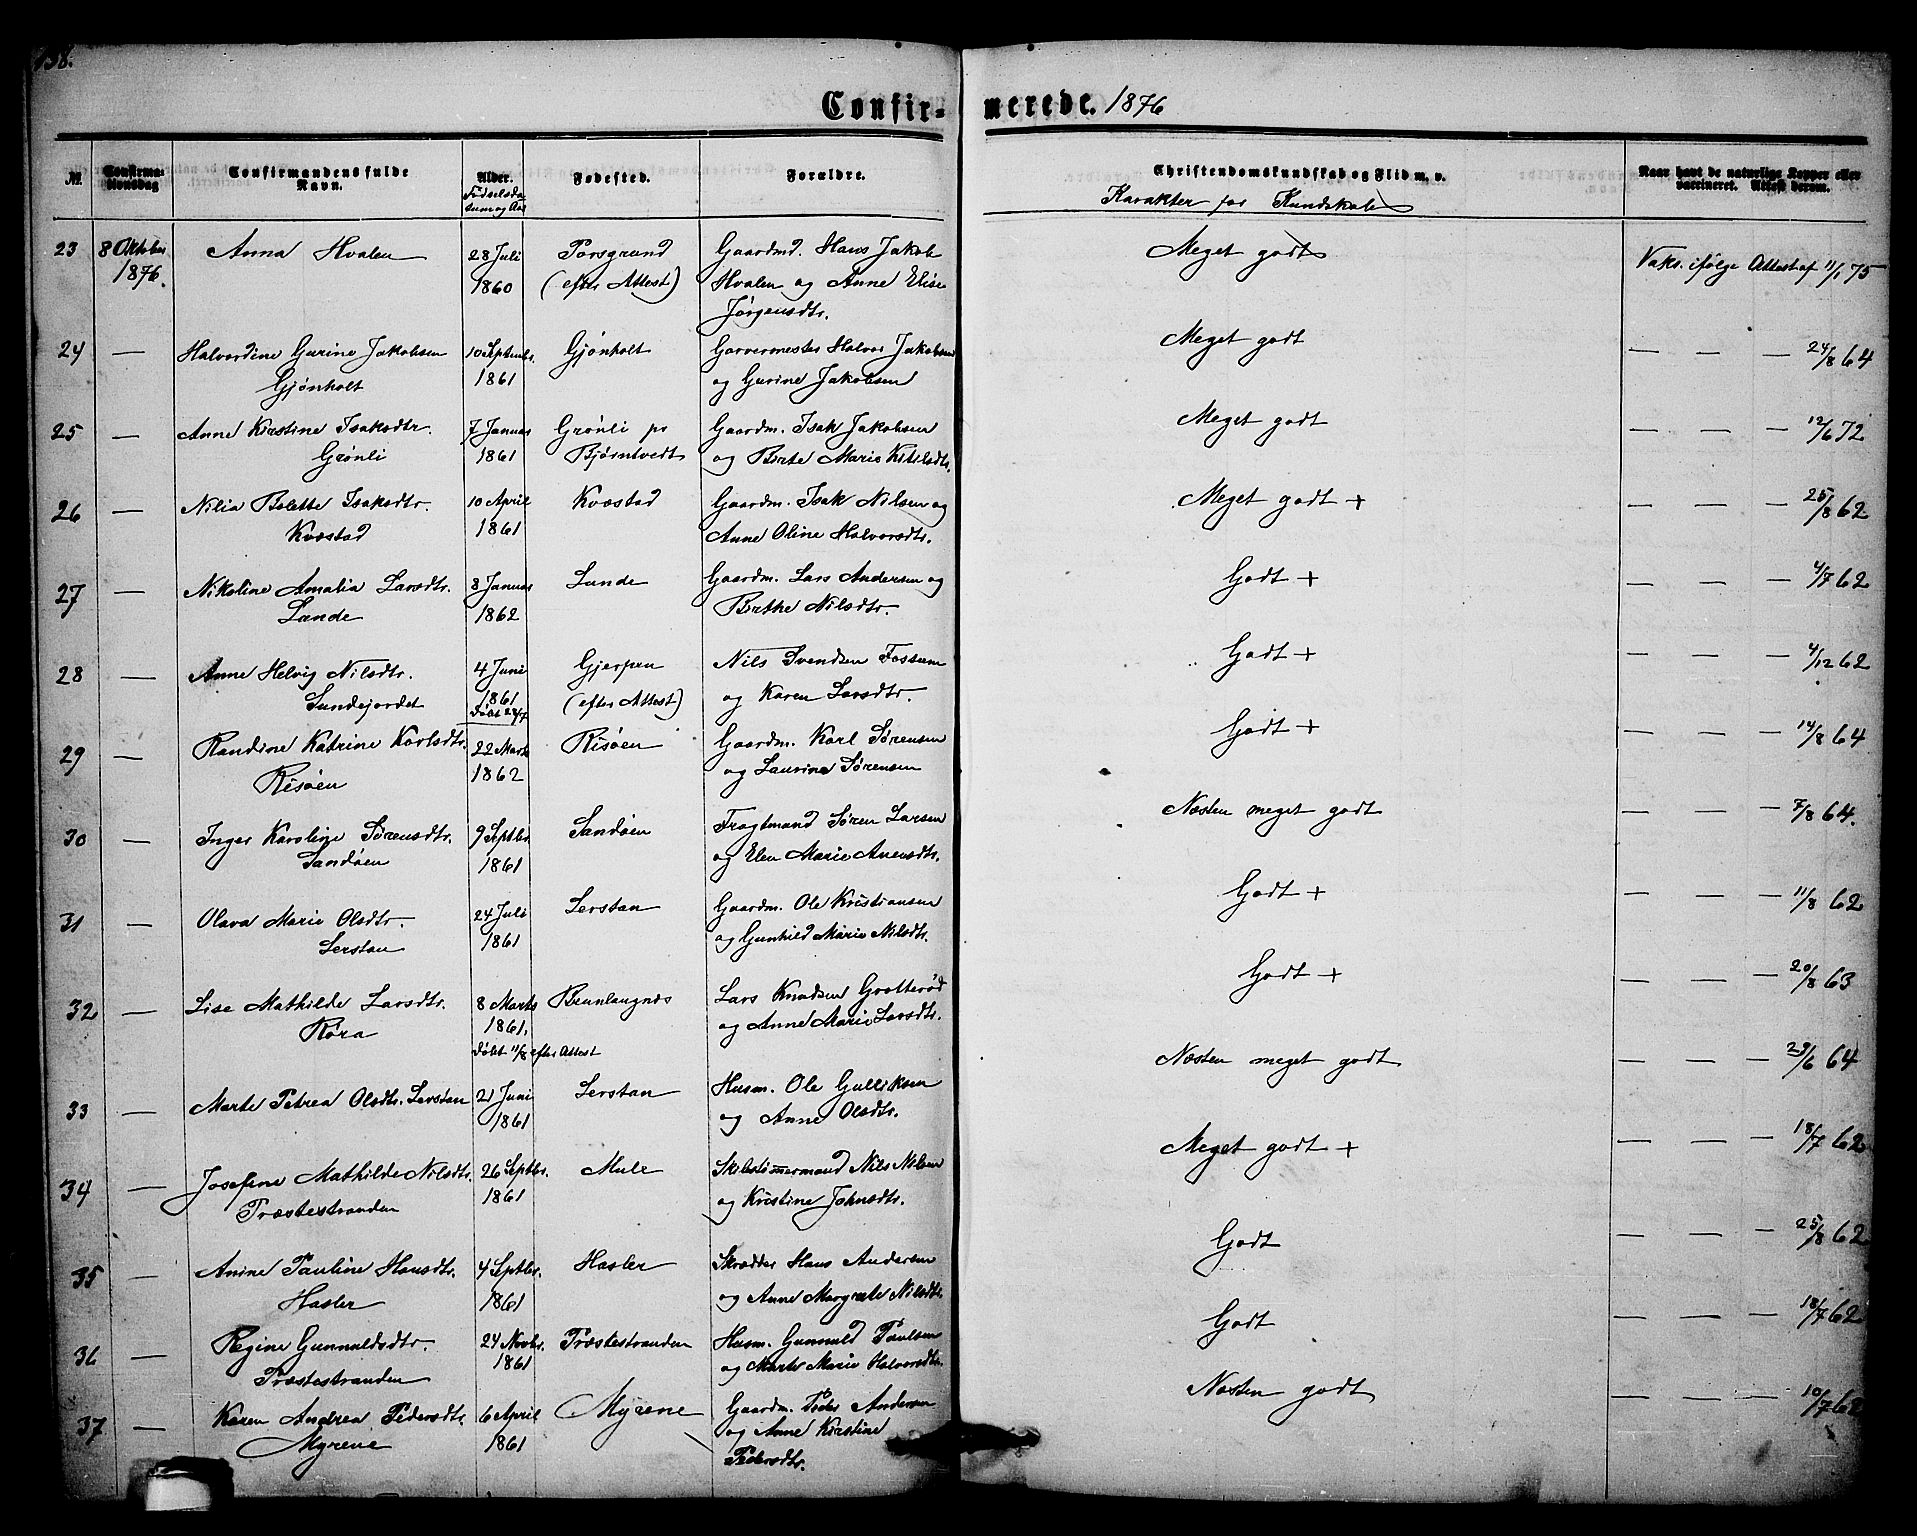 138.
Confir-merede. 1876
№.
Confirmationsdag
Confirmandens fulde Navn.
Alder. Fødselsdatum og Aar
Fødested.
Forældre.
Christendomskundskab og Flid m. v.
Karakter for Kundskab
Naar havt de naturlige Kopper eller vaccineret. Attest derom.
23 8 Oktober Anna Hvalen 28 Juli Porsgrund Gaardmd. Hans Jakob Meget godt Vaks. ifølge Attest af 11/1 75
1876. 1860 (efter Attest) Hvalen og Anne Elise
Jørgensdtr.
24 — Halvordine Gurine Jakobsen 10 Septembr. Gjønholt Garvermester Halvor Jakobsen Meget godt — — — 24/8 64
Gjønholt 1861 og Gurine Jakobsen
25 — Anne Kirstine Isaksdtr. 7 Januar Grønli pr Gaardm. Isak Jakobsen Meget godt — — — 12/6 72
Grønli 1861 Bjørntvedt og Birte Marie Kitilsdtr.
26 — Nilia Bolette Isaksdtr. 10 April Kvæstad Gaardm. Isak Nilsen og Meget godt + — — — 25/8 62
Kvæstad 1861 Anne Oline Halvorsdtr.
27 — Nikoline Amalia Larsdtr. 8 Januar Lunde Gaardm. Lars Andersen og Godt + — — — 4/7 62
Lunde 1862 Birthe Nilsdtr.
28 — Anne Helvig Nilsdtr. 4 Juni Gjerpen Nils Svendsen Fossum Godt + — — — 4/12 62
Lundejordet 1861 (efter Attest) og Karen Larsdtr.
Døbt 28/7
29 — Randine Katrine Karlsdtr. 22 Marts Risøen Gaardm. Karl Sørensen Godt + — — — 14/8 64
Risøen 1862 og Laurine Sørensen
30 — Inger Karoline Sørensdtr. 9 Septbr. Sandøen Fragtmand Søren Larsen Næsten meget godt — — — 7/8 64.
Sandøen 1861 og Elen Marie Anensdtr.
31 — Olava Marie Olsdtr. 24 Juli Serstan Gaardm. Ole Kristiansen Godt + — — — 11/8 62
Serstan 1861 og Gunhild Marie Nilsdtr.
32 — Lise Mathilde Larsdtr. 8 Marts Brunlaugnæs Lars Knudsen Grotterød Godt + — — — 20/8 63
Røra 1861. og Anne Marie Larsdtr.
Døbt 11/8 efter Attest
33 — Marte Petrea Olsdtr. Serstan 21 Juni Serstan Husm. Ole Gulliksen Næsten meget godt — — — 29/6 64
1861 og Anne Olsdtr.
34 — Josefine Mathilde Nilsdtr. 26 Septbr. Mule Skibstømmermand Nils Nilsen Meget godt + — — — 18/7 62
Træstestranden 1861 og Kristine Johnsdtr.
35 — Anine Pauline Hansdtr. 4 Septbr. Hasler Skrædder Hans Andersen Godt — — — 25/8 62
Hasler 1861 og Anne Margrete Nilsdtr.
36 — Regine Gunnuldsdtr. 24 Novbr. Træstestranden Husm. Gunnuld Paulsen Godt — — — 18/7 62
Træstestranden 1861 og Marte Marie Halvorsdtr.
37 — Karen Andrea Pedersdtr. 6 April Myrene Gaardm. Peder Andersen Næsten godt — — — 10/7 62
Myrene 1861 og Anne Kirstine
Pedersdtr.